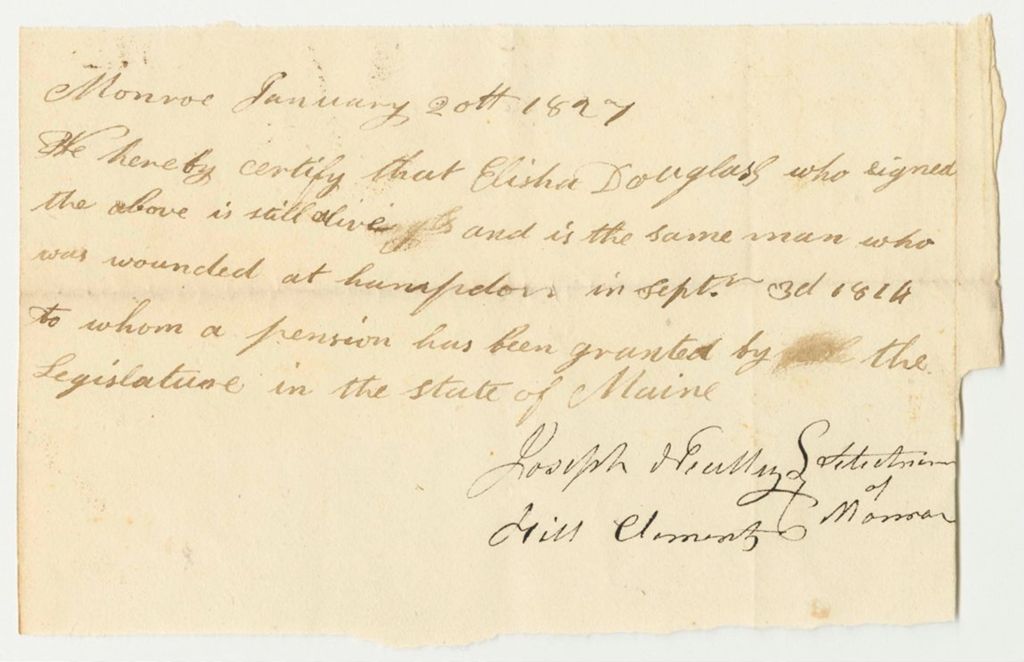 Monroe January 20th 1827
We hereby certify that Elisha Douglass who signed
the above is still alive and is the same man who
was wounded at hampdon in Septr 3d 1814
to whom a pension has been granted by the
Legislature in the state of Maine
Joseph Selectmen
of
Hill Clements Monroe